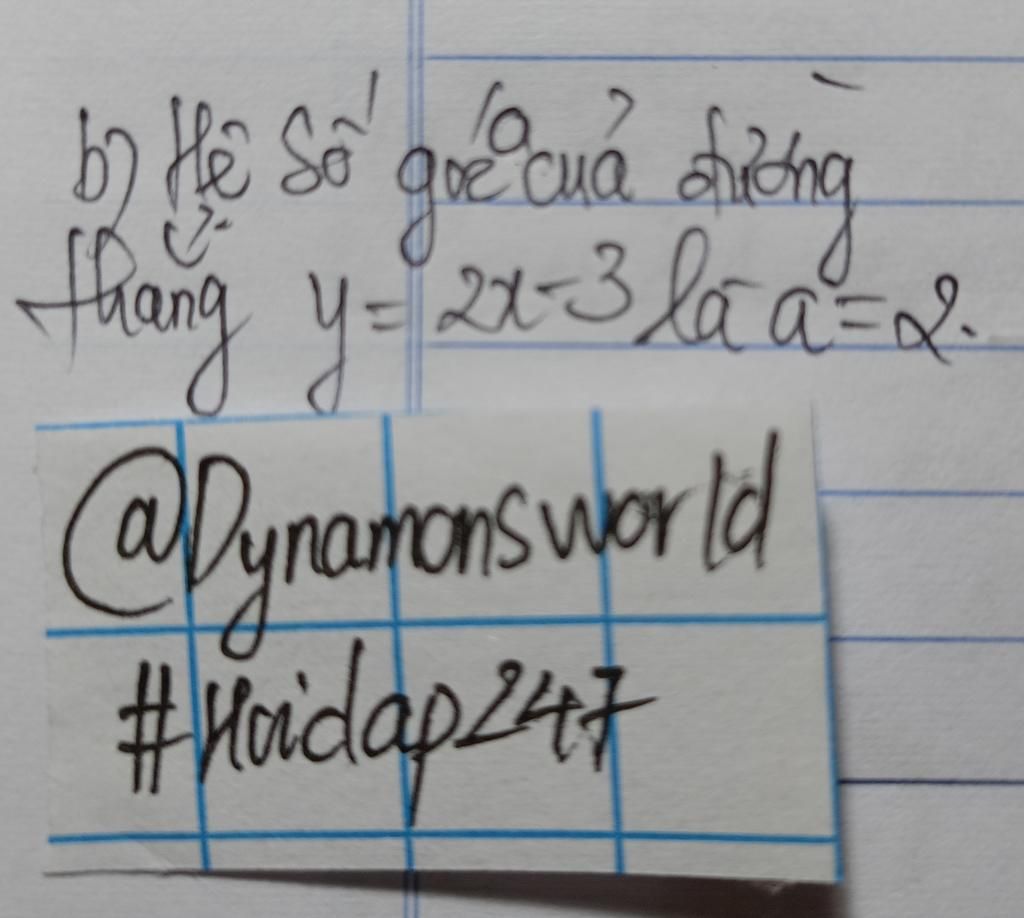 b) Hệ số góc a của đường
thẳng y = 2x - 3 là a = 2.
@Dynamonsworld
#Hoidap247